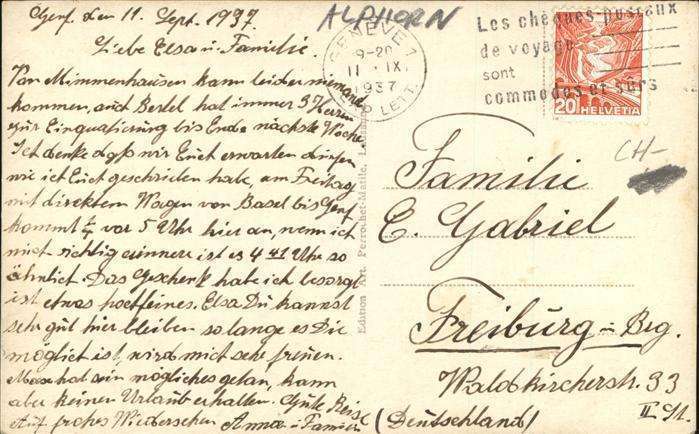 Genf, den 11. Sept. 1937
Liebe Elsa u. Familie.
Von Mimmenhausen kann leider niemand
kommen, auch Bertel hat immer 3 Herren
zur Einquatierung bis Ende nächste Woche.
Ich denke daß wir Euch erwarten dürfen
wie ich Euch geschrieben habe, am Freitag
mit direktem Wagen von Basel bis Genf
kommt ¼ vor 5 Uhr hier an, wenn ich
mich richtig erinnere ist es 4 41 Uhr so
ähnlich. Das Geschenk habe ich besorgt
ist etwas hochfeines. Elsa Du kannst
sehr gut hier bleiben so lange es Dir
möglich ist, wird mich sehr freuen.
Max hat sein mögliches getan, kann
aber keinen Urlaub erhalten. Gute Reise
Auf frohes Wiedersehen Anna u. Familie
ALPHORN
GENÈVE 1
9-20
11. IX.
1937
EXP. LETT.
Les chèques postaux
de voyage
sont
commodes et sûrs
20 HELVETIA
CH-
Edition Art. Perrochet-Matile, Lausanne
Familie
E. Gabriel
Freiburg - Brg.
Waldkircherstr. 33
II St.
(Deutschland)